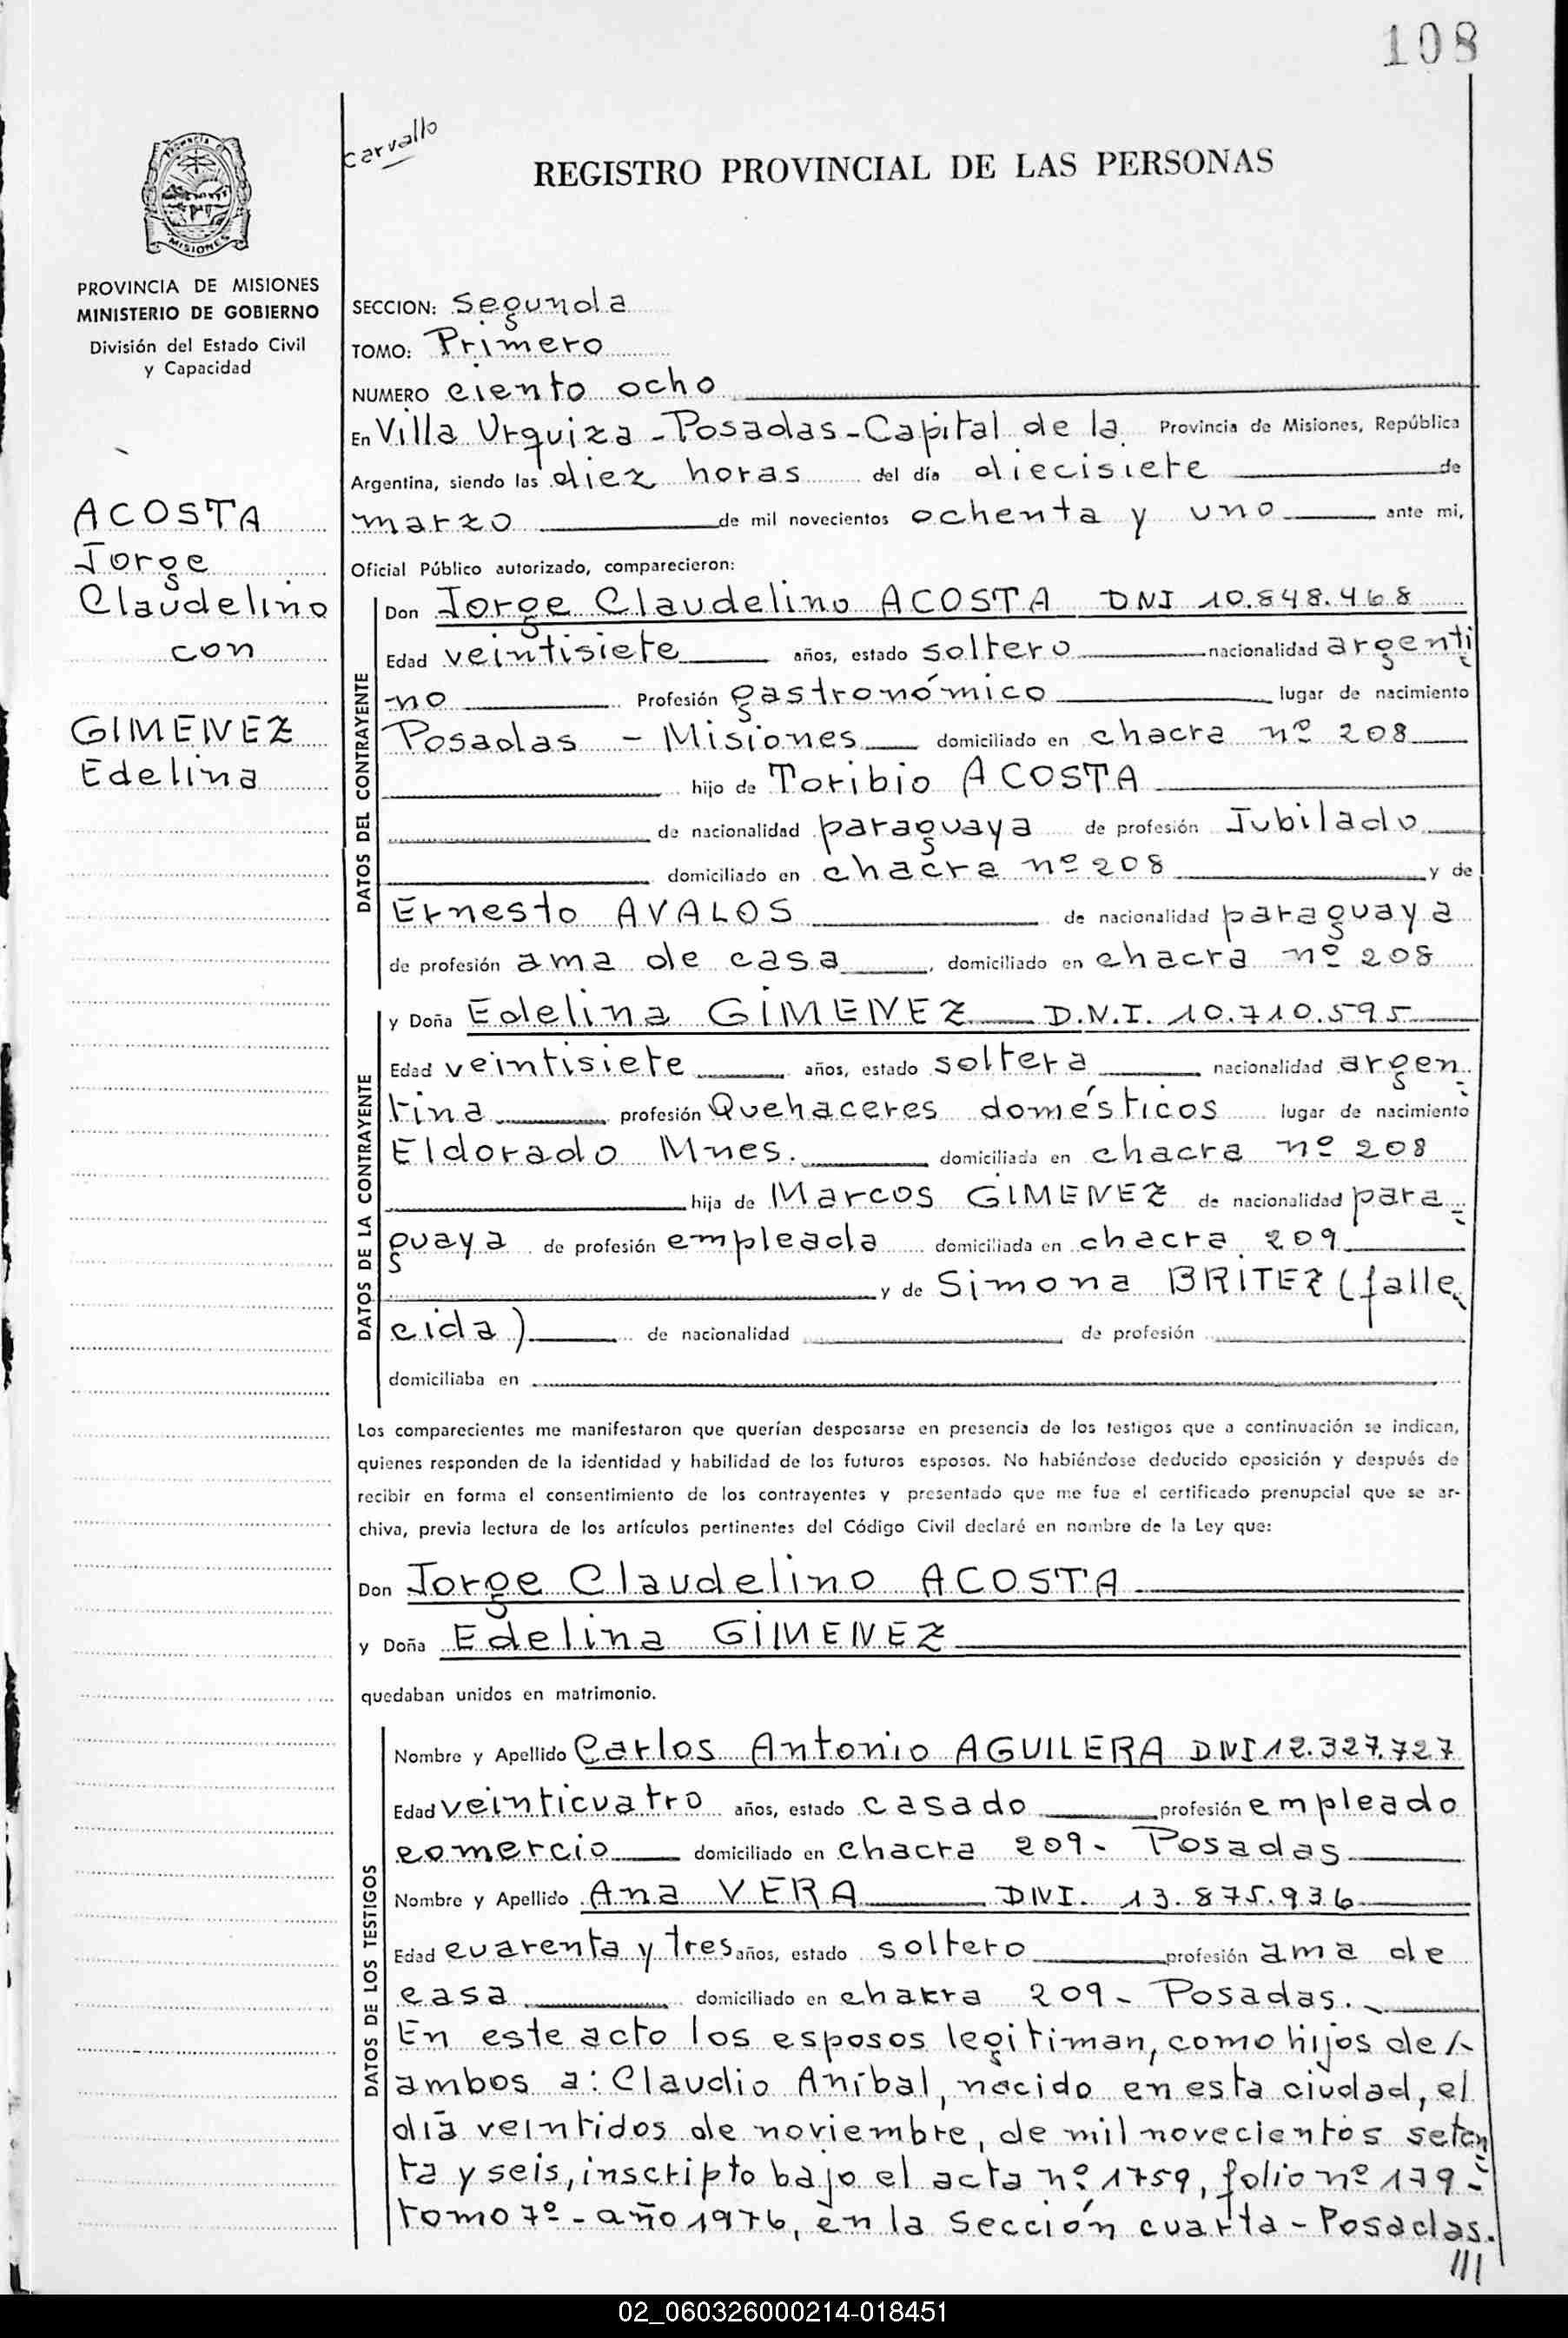 108
carvallo
REGISTRO PROVINCIAL DE LAS PERSONAS
MISIONES
PROVINCIA DE MISIONES
MINISTERIO DE GOBIERNO
División del Estado Civil
y Capacidad
ACOSTA
Jorge
Claudelino
con
GIMENEZ
Edelina
SECCION: Segunda
TOMO: Primero
NUMERO ciento ocho
En Villa Urquiza - Posadas - Capital de la Provincia de Misiones, República
Argentina, siendo las diez horas del día diecisiete de
marzo de mil novecientos ochenta y uno ante mi,
Oficial Público autorizado, comparecieron:
DATOS DEL CONTRAYENTE
Don Jorge Claudelino ACOSTA DNI 10.848.468
Edad veintisiete años, estado soltero nacionalidad argenti
no Profesión gastronómico lugar de nacimiento
Posadas - Misiones domiciliado en chacra nº 208
hijo de Toribio ACOSTA
de nacionalidad paraguaya de profesión Jubilado
domiciliado en chacra nº 208 y de
Ernesto AVALOS de nacionalidad paraguaya
de profesión ama de casa, domiciliado en chacra nº 208
DATOS DE LA CONTRAYENTE
y Doña Edelina GIMENEZ D.N.I. 10.710.595
Edad veintisiete años, estado soltera nacionalidad argen-
tina profesión Quehaceres domésticos lugar de nacimiento
Eldorado Mnes. domiciliada en chacra nº 208
hija de Marcos GIMENEZ de nacionalidad para-
guaya de profesión empleada domiciliada en chacra 209
y de Simona BRITEZ (falle
cida) de nacionalidad de profesión
domiciliaba en
Los comparecientes me manifestaron que querían desposarse en presencia de los testigos que a continuación se indican,
quienes responden de la identidad y habilidad de los futuros esposos. No habiéndose deducido oposición y después de
recibir en forma el consentimiento de los contrayentes y presentado que me fue el certificado prenupcial que se ar-
chiva, previa lectura de los artículos pertinentes del Código Civil declaré en nombre de la Ley que:
Don Jorge Claudelino ACOSTA
y Doña Edelina GIMENEZ
quedaban unidos en matrimonio.
DATOS DE LOS TESTIGOS
Nombre y Apellido Carlos Antonio AGUILERA DNI 12.327.727
Edad veinticuatro años, estado casado profesión empleado
comercio domiciliado en chacra 209- Posadas
Nombre y Apellido Ana VERA DNI. 13.875.936
Edad cuarenta y tres años, estado soltero profesión ama de
casa domiciliado en chakra 209- Posadas.
En este acto los esposos legitiman, como hijos de
ambos a: Claudio Aníbal, nacido en esta ciudad, el
día veintidos de noviembre, de mil novecientos seten
ta y seis, inscripto bajo el acta nº 1759, folio nº 179-
tomo 7º - año 1976, en la Sección cuarta - Posadas.
///
02_060326000214-018451